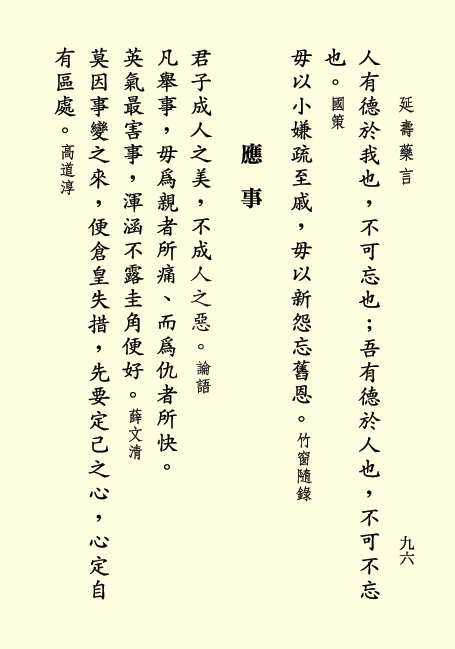 延壽藥言
九六
人有德於我也，不可忘也；吾有德於人也，不可不忘
也。國策
毋以小嫌疏至戚，毋以新怨忘舊恩。竹窗隨錄
應事
君子成人之美，不成人之惡。論語
凡舉事，毋為親者所痛、而為仇者所快。
英氣最害事，渾涵不露圭角便好。薛文清
莫因事變之來，便倉皇失措，先要定己之心，心定自
有區處。高道淳